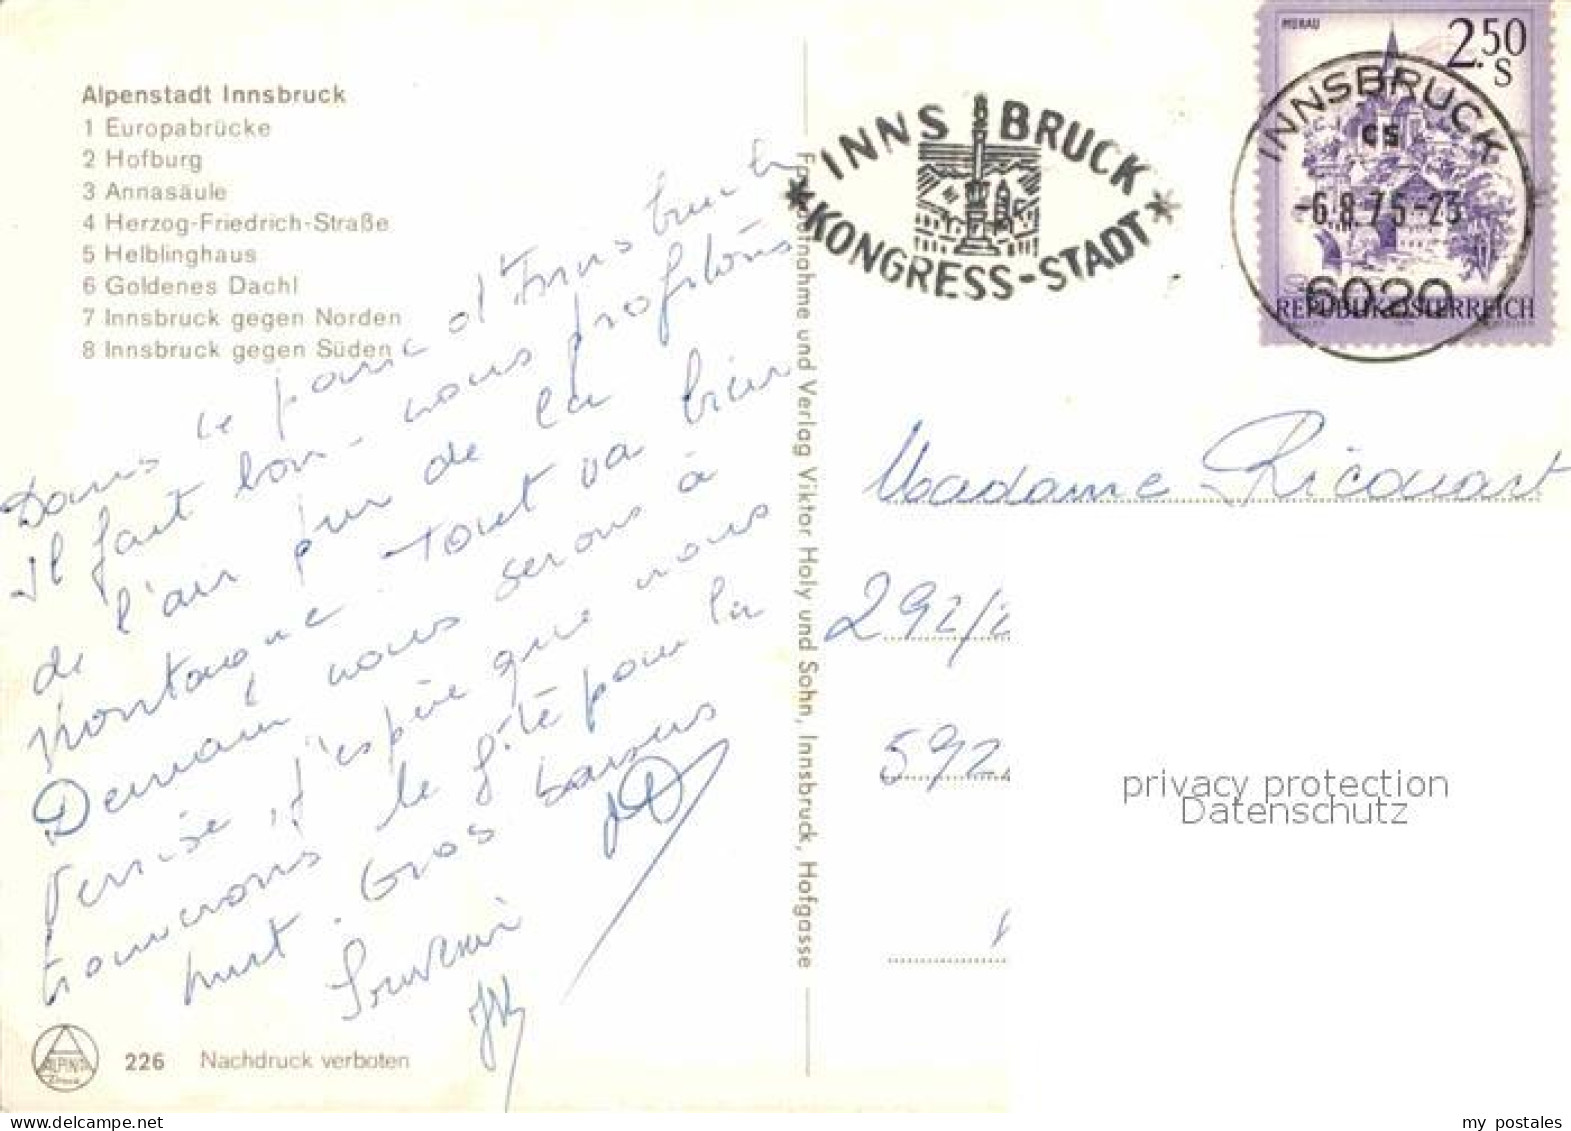 Alpenstadt Innsbruck
1 Europabrücke
2 Hofburg
3 Annasäule
4 Herzog-Friedrich-Straße
5 Helblinghaus
6 Goldenes Dachl
7 Innsbruck gegen Norden
8 Innsbruck gegen Süden
Dans le parc d'Innsbruck
Il fait bon - nous profitons
de l'air pur de la
montagne - tout va bien
Demain nous serons à
Venise, j'espère que nous
trouverons le gîte pour la
nuit. Gros baisers
Souvenir
ALPINA
226 Nachdruck verboten
und Verlag Viktor Holy und Sohn, Innsbruck, Hofgasse
INNSBRUCK
*KONGRESS-STADT*
MURAU
2.50
S
REPUBLIK ÖSTERREICH
INNSBRUCK
cs
-6.8.75-23
6020
Madame Ricquart
292/2
592
privacy protection
Datenschutz
my postales